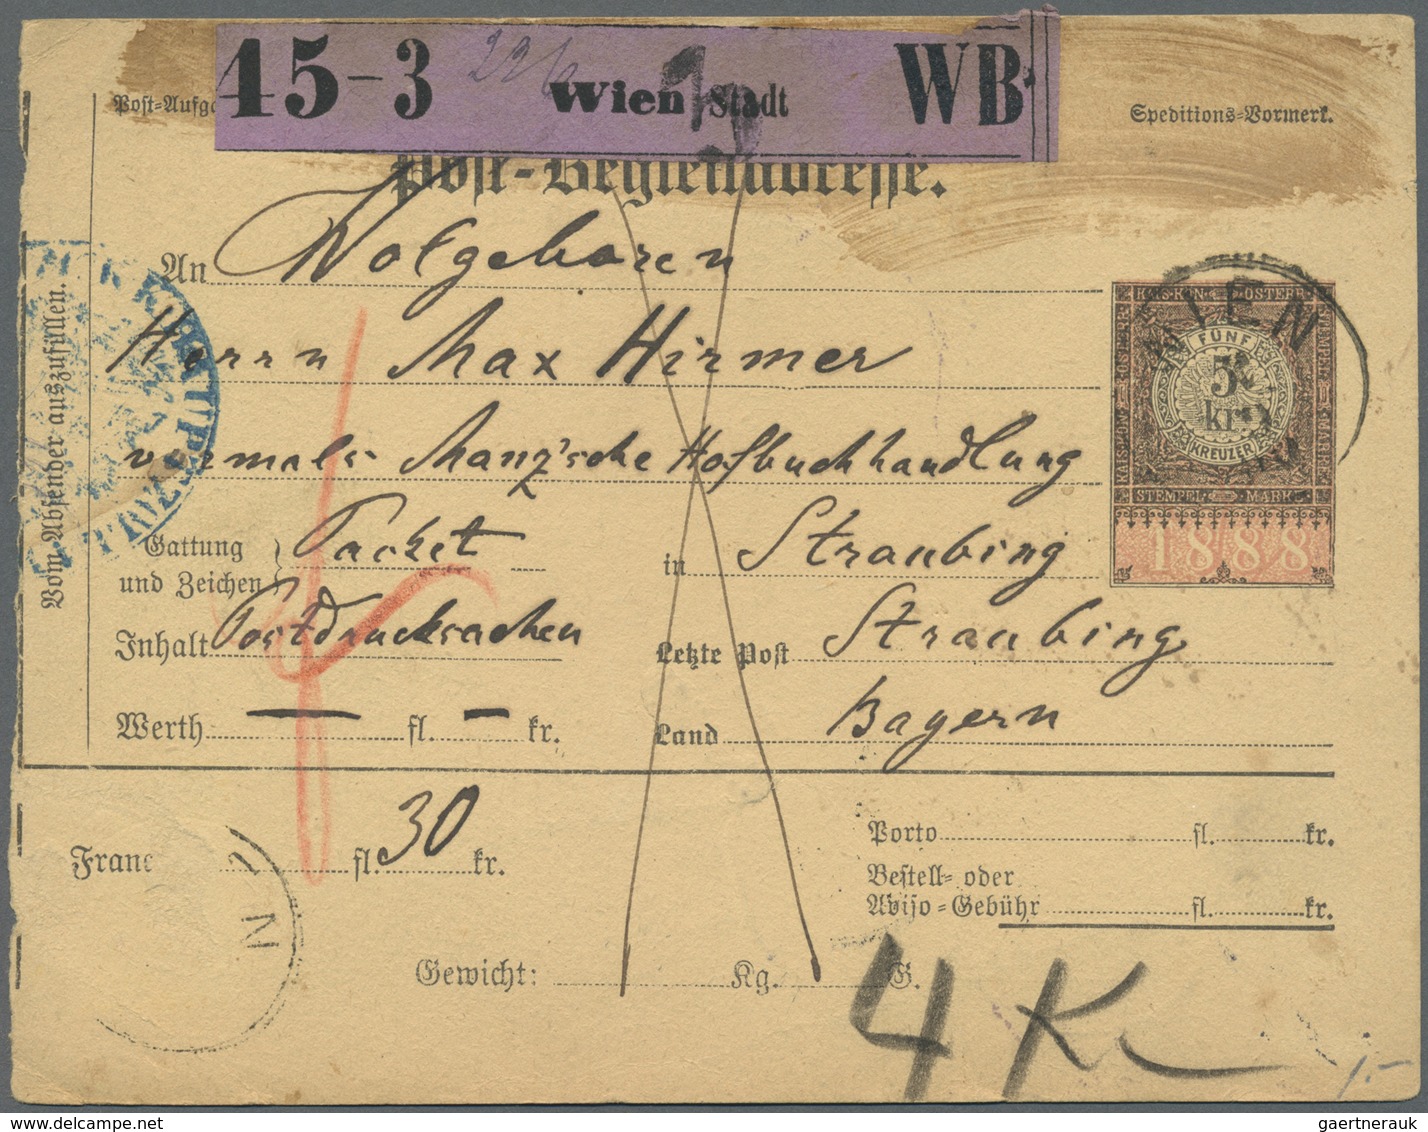 45-3 Wien Stadt WB
Post-Aufga
Speditions-Vormerk.
Post-Begleitadresse.
Vom Absender auszufüllen.
An Wolgeboren
Herrn Max Hirmer
vormals Manz'sche Hofbuchhandlung
Gattung und Zeichen } Packet in Straubing
Inhalt Postdrucksachen Letzte Post Straubing
Werth — fl. — kr. Land Bayern
KAIS. KÖN. ÖSTERR.
FÜNF
5
kr
KREUZER
STEMPEL MARKE
1888
WIEN
Franc fl. 30 kr.
Porto fl. kr.
Bestell- oder
Avijo-Gebühr fl. kr.
Gewicht: Kg. G.
4 K
1.-
gaertnerauk